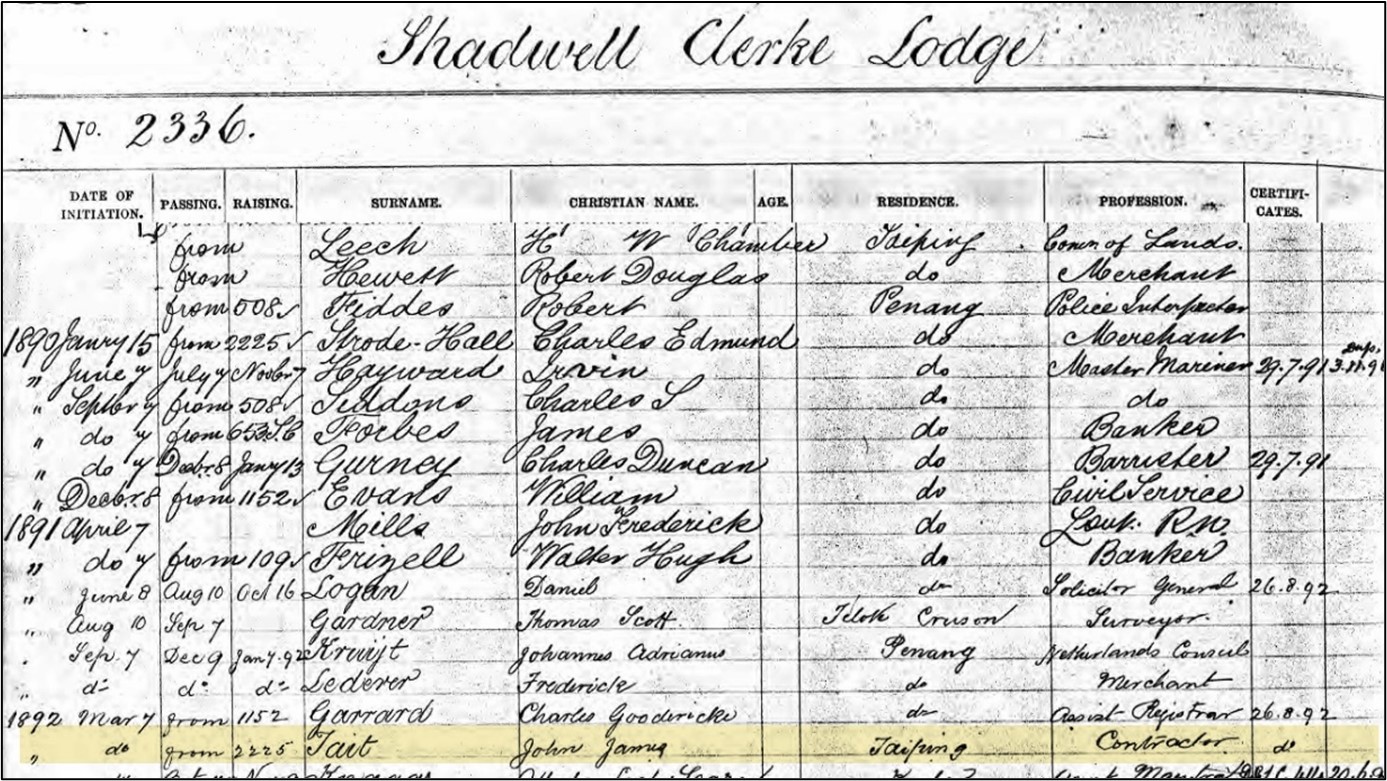 Shadwell Clerke Lodge
No. 2336.
DATE OF INITIATION. PASSING. RAISING. SURNAME. CHRISTIAN NAME. AGE. RESIDENCE. PROFESSION. CERTIFI-CATES.
from Leech H W Chamber Taiping Comm of Lands.
from Hewett Robert Douglas do Merchant
from 508 Fiddes Robert Penang Police
1890 Janry 15 from 2225 Strode-Hall Charles Edmund do Merchant
" June 7 July 7 Novbr 7 Hayward Irvin do Master Mariner 29.7.91
" Septbr 7 from 508 Siddons Charles S do do
" do 7 from 653 S.C Forbes James do Banker
" do 7 Decbr. 8 Janry 13 Gurney Charles Duncan do Barrister 29.7.91
" Decbr. 8 from 1152 Evans William do Civil Service
1891 April 7 Mills John Frederick do Lout. RN.
" do 7 from 109 Frizell Walter Hugh do Banker
" June 8 Aug 10 Oct 16 Logan Daniel do Solicitor General 26.8.92
" Aug 10 Sep 7 Gardner Thomas Scott Telok Surveyor.
Sep. 7 Dec 9 Jan 7.92 Kruijt Johannes Adrianus Penang Netherlands Consul
" do do do Lederer Frederick do Merchant
1892 Mar 7 from 1152 Garrard Charles Goodericke do Assist Registrar 26.8.92
" do from 2225 Tait John James Taiping Contractor do